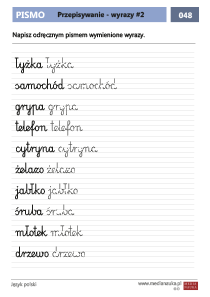 PISMO Przepisywanie - wyrazy #2 048
Napisz odręcznym pismem wymienione wyrazy.
łyżka łyżka
samochód samochód
grypa grypa
telefon telefon
cytryna cytryna
żelazo żelazo
jabłko jabłko
śruba śruba
młotek młotek
drzewo drzewo
Język polski www.medianauka.pl